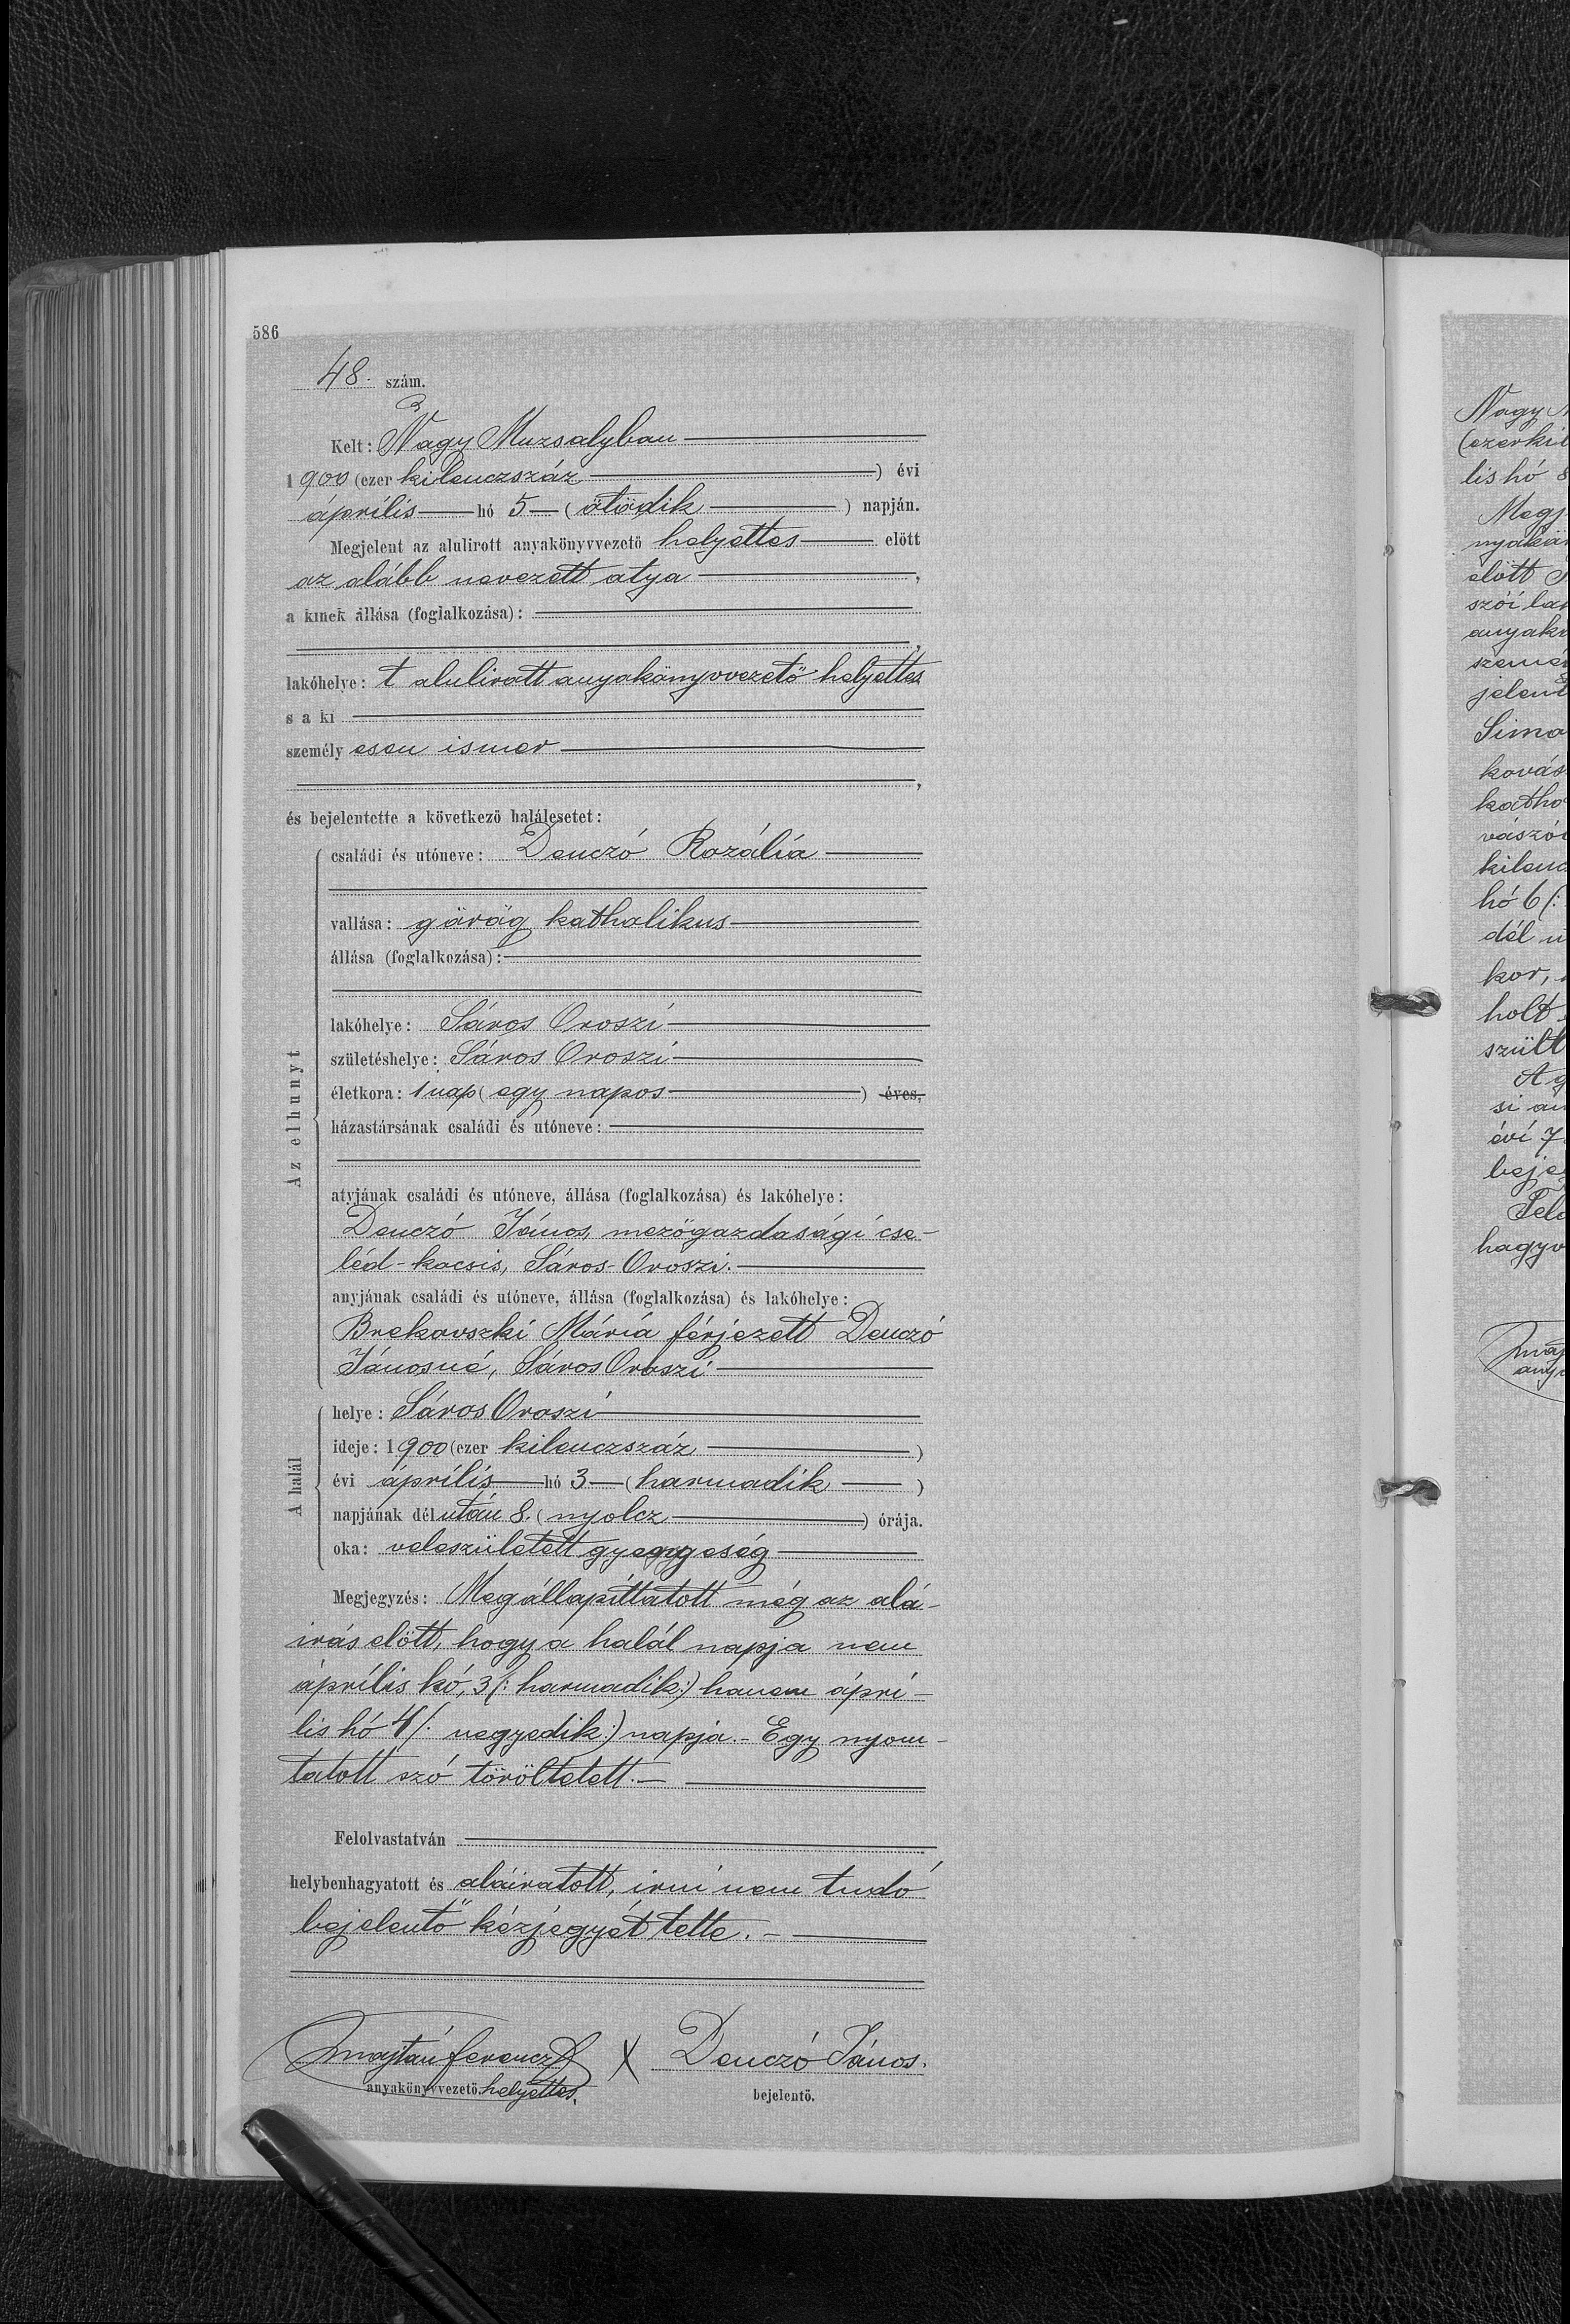 586
48. szám.
Kelt: Nagy Muzsalyban
1900 (ezer kilenczszáz) évi
április hó 5 (ötödik) napján.
Megjelent az alulirott anyakönyvvezető helyettes előtt
az alább nevezett atya,
a kinek állása (foglalkozása):
lakóhelye: t alulirott anyakönyvvezető helyettes
s a ki
személyesen ismer,
és bejelentette a következő halálesetet:
Az elhunyt
családi és utóneve: Denczó Rozália
vallása: görög katholikus
állása (foglalkozása):
lakóhelye: Sáros Oroszi
születéshelye: Sáros Oroszi
életkora: 1 nap (egy napos) éves,
házastársának családi és utóneve:
atyjának családi és utóneve, állása (foglalkozása) és lakóhelye:
Denczó János, mezőgazdasági cse-
léd-kocsis, Sáros-Oroszi.
anyjának családi és utóneve, állása (foglalkozása) és lakóhelye:
Brekovszki Mária férjezett Denczó
Jánosné, Sáros Oroszi
A halál
helye: Sáros Oroszi
ideje: 1900 (ezer kilenczszáz)
évi április hó 3 (harmadik)
napjának délután 8. (nyolcz) órája.
oka: veleszületett gyengeség
Megjegyzés: Megállapíttatott még az alá-
irás előtt, hogy a halál napja nem
április hó, 3 (: harmadik:) hanem ápri-
lis hó 4 (: negyedik:) napja. - Egy nyom-
tatott szó töröltetett. -
Felolvastatván
helybenhagyatott és aláiratott, irni nem tudó
bejelentő kézjegyét tette. -
Majtán Ferencz X Denczó János.
anyakönyvvezető helyettes. bejelentő.
Nagy M
(ezerkil
lis hó 8
Megj
nyakön
előtt
szói lak
anyakö
szemé
jelent
Simo
kovás
katho
vászó
kilenc
hó 6 (:
dél u
kor,
holt
szült
A g
si an
évi 7
beje
Felo
hagyv
Maj
anya